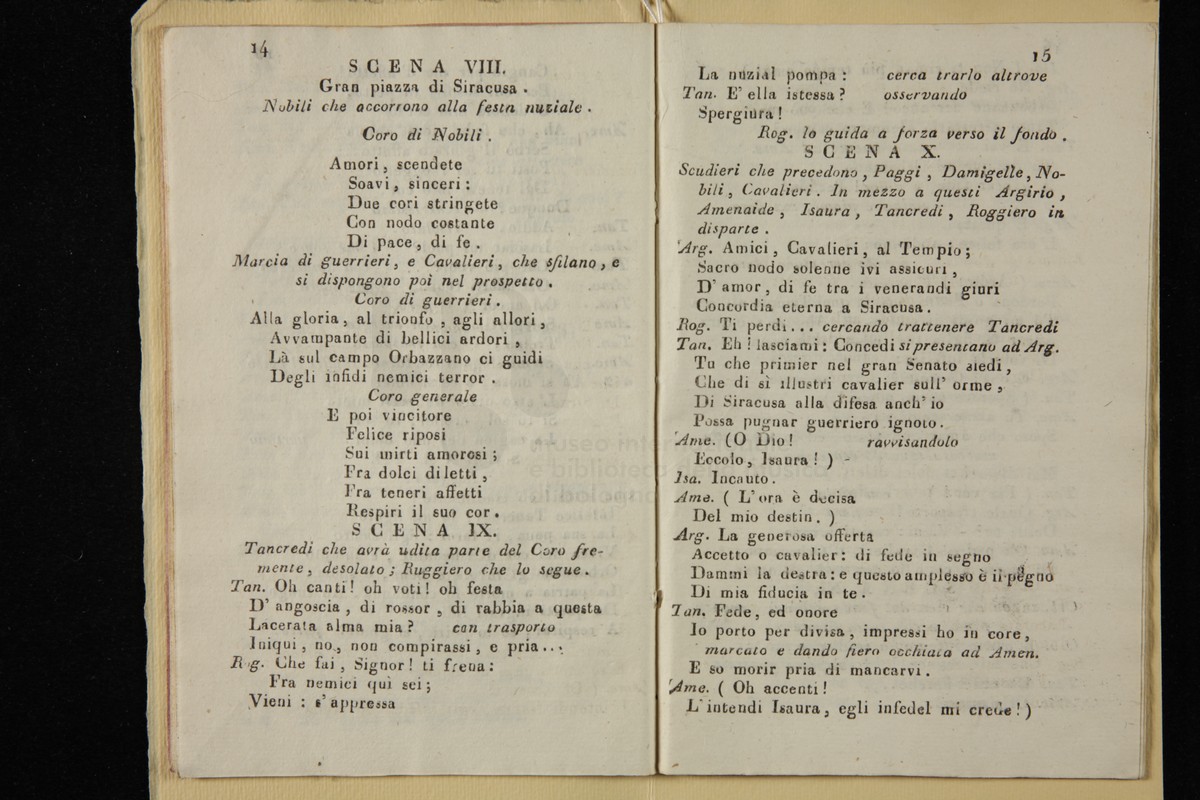 14
SCENA VIII.
Gran piazza di Siracusa .
Nobili che accorrono alla festa nuziale .
Coro di Nobili .
Amori, scendete
Soavi, sinceri :
Due cori stringete
Con nodo costante
Di pace, di fe .
Marcia di guerrieri, e Cavalieri, che sfilano, e
si dispongono poi nel prospetto .
Coro di guerrieri .
Alla gloria, al trionfo , agli allori,
Avvampante di bellici ardori ,
Là sul campo Orbazzano ci guidi
Degli infidi nemici terror .
Coro generale
E poi vincitore
Felice riposi
Sui mirti amorosi ;
Fra dolci diletti ,
Fra teneri affetti
Respiri il suo cor .
SCENA IX.
Tancredi che avrà udita parte del Coro fre-
mente , desolato ; Ruggiero che lo segue .
Tan. Oh canti! oh voti! oh festa
D' angoscia , di rossor , di rabbia a questa
Lacerata alma mia ? con trasporto
Iniqui , no, non compirassi, e pria . . .
Rog. Che fai , Signor! ti frena :
Fra nemici quì sei ;
Vieni : s' appressa
15
La nuzial pompa : cerca trarlo altrove
Tan. E' ella istessa ? osservando
Spergiura !
Rog. lo guida a forza verso il fondo .
SCENA X.
Scudieri che precedono , Paggi , Damigelle , No-
bili , Cavalieri . In mezzo a questi Argirio ,
Amenaide , Isaura , Tancredi , Roggiero in
disparte .
Arg. Amici , Cavalieri , al Tempio ;
Sacro nodo solenne ivi assicuri ,
D' amor , di fe tra i venerandi giuri
Concordia eterna a Siracusa .
Rog. Ti perdi . . . cercando trattenere Tancredi
Tan. Eh ! lasciami : Concedi si presentano ad Arg.
Tu che primier nel gran Senato siedi ,
Che di sì illustri cavalier sull' orme ,
Di Siracusa alla difesa anch' io
Possa pugnar guerriero ignoto .
Ame. (O Dio ! ravvisandolo
Eccolo , Isaura ! ) -
Isa. Incauto .
Ame. ( L' ora è decisa
Del mio destin . )
Arg. La generosa offerta
Accetto o cavalier : di fede in segno
Dammi la destra : e questo amplesso è il pegno
Di mia fiducia in te .
Tan. Fede , ed onore
Io porto per divisa , impressi ho in core ,
marcato e dando fiero occhiata ad Amen.
E so morir pria di mancarvi .
Ame. ( Oh accenti !
L' intendi Isaura , egli infedel mi crede ! )